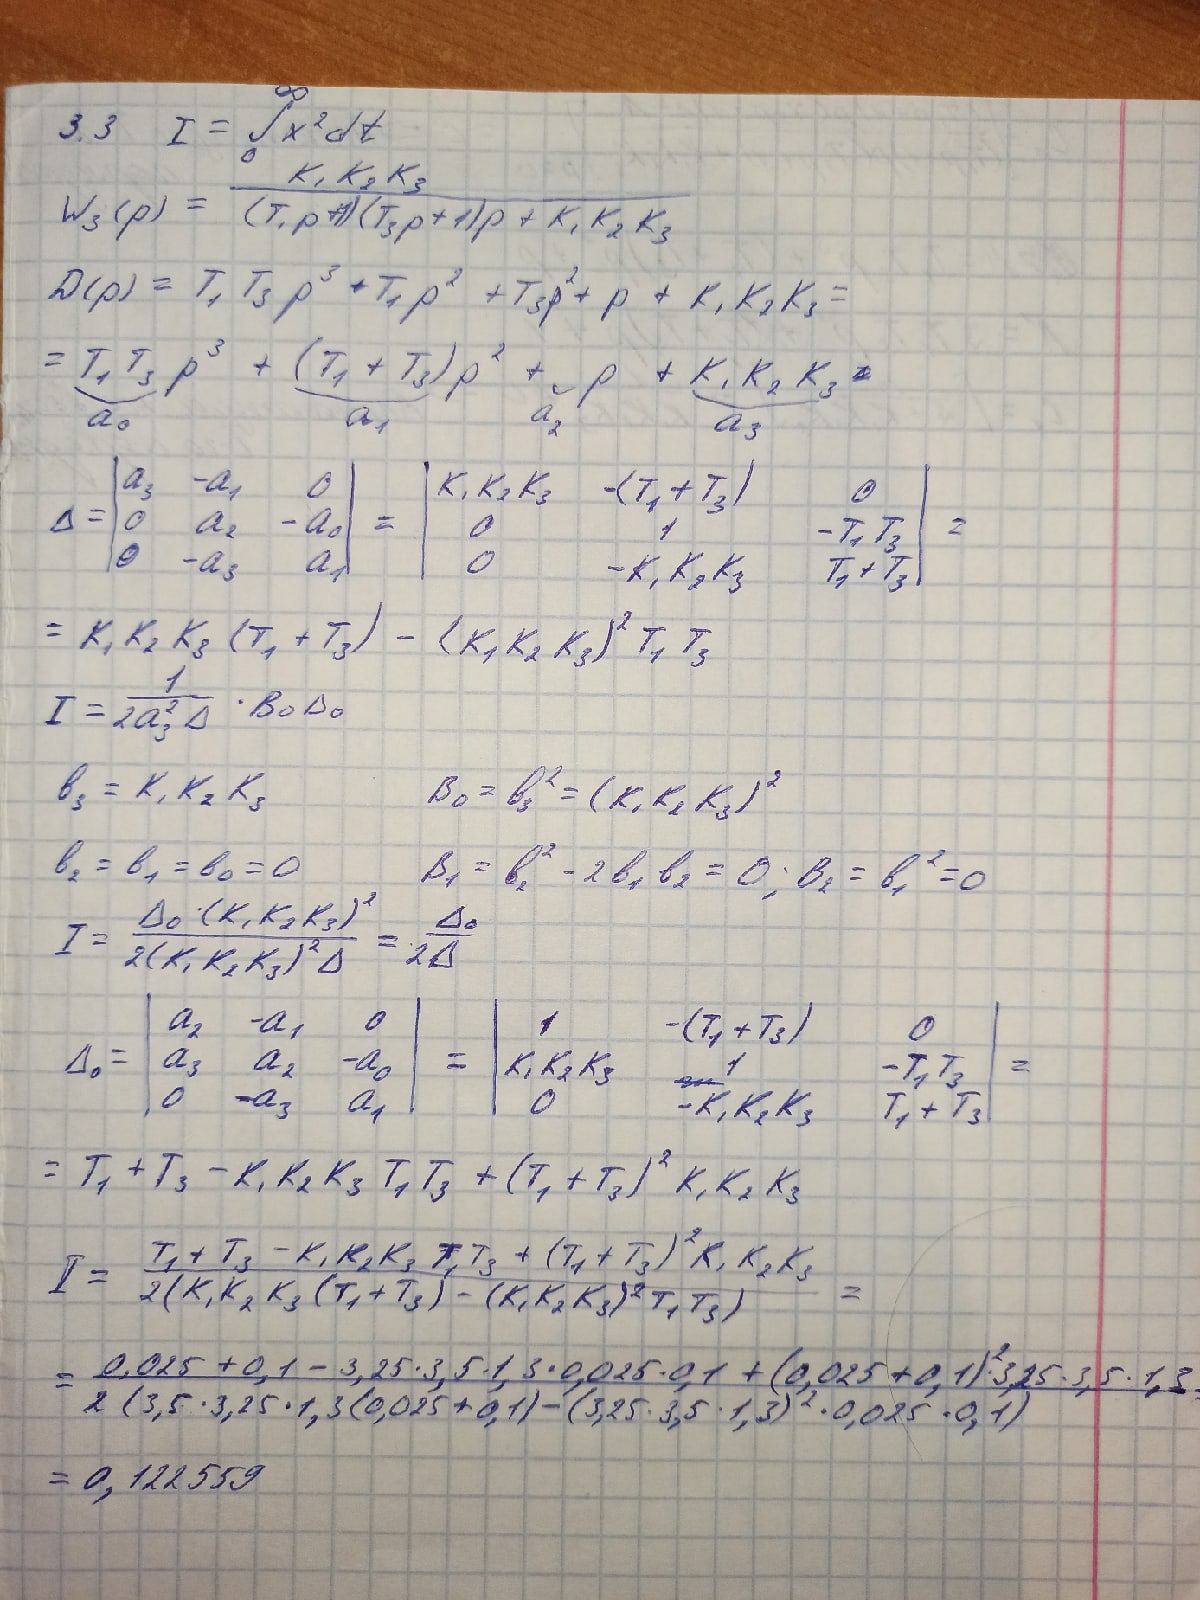 3.3 I = ∫₀^∞ x² dt
W₃(p) = K₁K₂K₃ / ((T₁p+1)(T₃p+1)p + K₁K₂K₃)
D(p) = T₁T₃p³ + T₁p² + T₃p² + p + K₁K₂K₃ =
= T₁T₃ p³ + (T₁ + T₃)p² + p + K₁K₂K₃ =
a₀ a₁ a₂ a₃
Δ = |a₃ -a₁ 0| = |K₁K₂K₃ -(T₁+T₃) 0| =
|0 a₂ -a₀| |0 1 -T₁T₃|
|0 -a₃ a₁| |0 -K₁K₂K₃ T₁+T₃|
= K₁K₂K₃(T₁ + T₃) - (K₁K₂K₃)²T₁T₃
I = 1 / (2a₃²Δ) · B₀Δ₀
b₃ = K₁K₂K₃ B₀ = b₃² = (K₁K₂K₃)²
b₂ = b₁ = b₀ = 0 B₁ = b₂² - 2b₁b₂ = 0; B₂ = b₁² = 0
I = Δ₀·(K₁K₂K₃)² / (2(K₁K₂K₃)²Δ) = Δ₀ / 2Δ
Δ₀ = |a₂ -a₁ 0| = |1 -(T₁+T₃) 0| =
|a₃ a₂ -a₀| |K₁K₂K₃ 1 -T₁T₃|
|0 -a₃ a₁| |0 -K₁K₂K₃ T₁+T₃|
= T₁ + T₃ - K₁K₂K₃T₁T₃ + (T₁ + T₃)²K₁K₂K₃
I = (T₁ + T₃ - K₁K₂K₃T₁T₃ + (T₁ + T₃)²K₁K₂K₃) / (2(K₁K₂K₃(T₁+T₃) - (K₁K₂K₃)²T₁T₃)) =
= (0,025 + 0,1 - 3,25·3,5·1,3·0,025·0,1 + (0,025 + 0,1)²·3,25·3,5·1,3) / (2(3,5·3,25·1,3(0,025+0,1) - (3,25·3,5·1,3)²·0,025·0,1)) =
= 0,122559